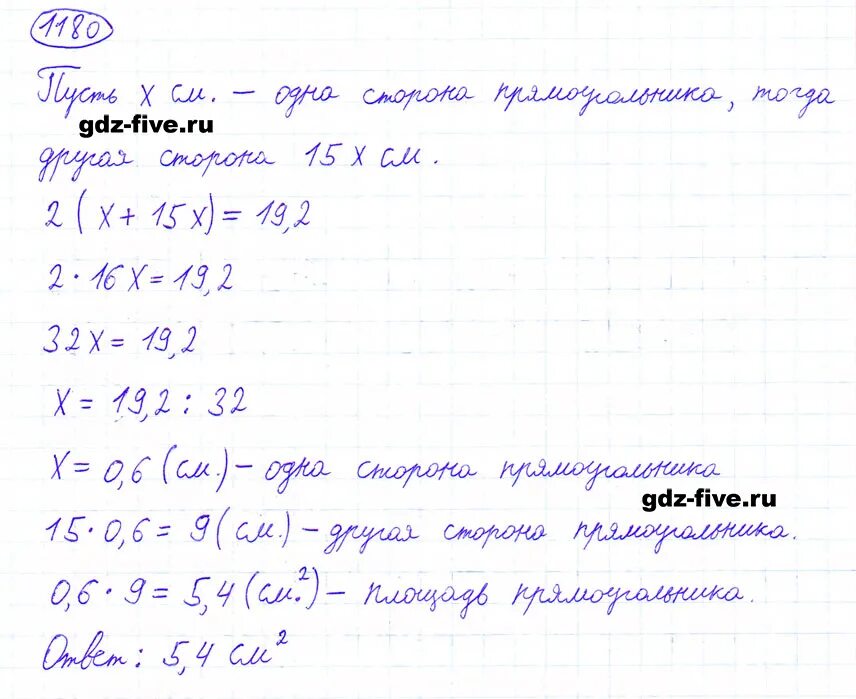 1180
Пусть x см. – одна сторона прямоугольника, тогда
gdz-five.ru
другая сторона 15 x см.
2 ( x + 15 x) = 19,2
2 · 16 x = 19,2
32 x = 19,2
x = 19,2 : 32
x = 0,6 (см.) – одна сторона прямоугольника
gdz-five.ru
15 · 0,6 = 9 ( см.) – другая сторона прямоугольника.
0,6 · 9 = 5,4 (см.²) – площадь прямоугольника.
Ответ: 5,4 см²